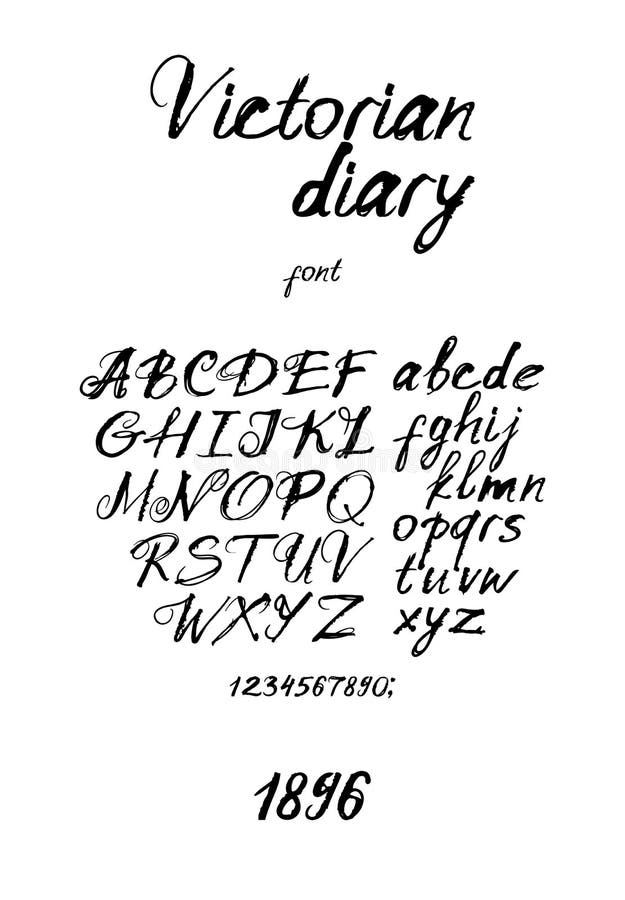 Victorian
diary
font
ABCDEF
GHIJKL
MNOPQ
RSTUV
WXYZ
abcde
fghij
klmn
opqrs
tuvw
xyz
1234567890;
1896